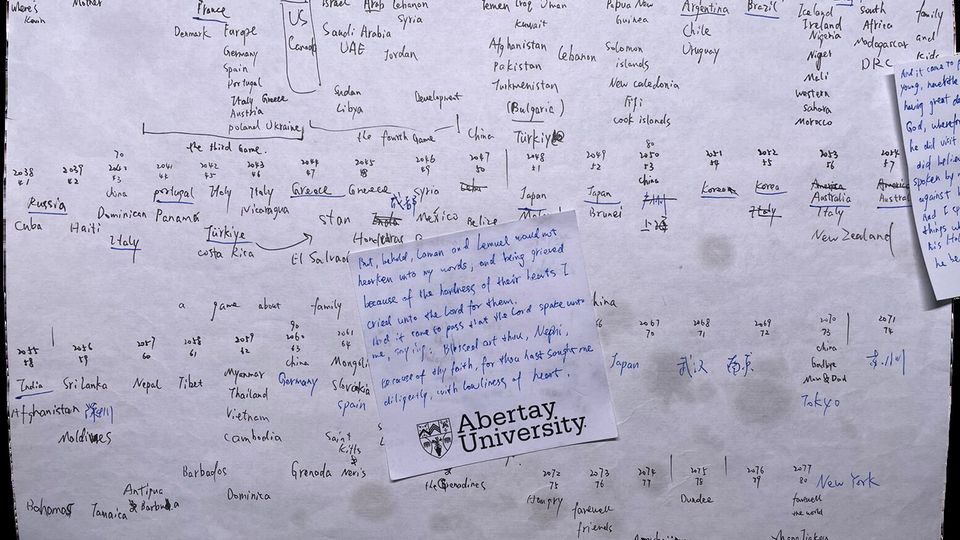 where's Mother
France
US
Canada
Israel Arab Lebanon
Syria
Yemen Iraq Oman
Kuwait
Papua New
Guinea
Argentina
Brazil
Iceland
Ireland
Nigeria
Niger
Mali
western
sahara
Morocco
South
Africa
Madagascar
DRC
family
and
Denmark Europe
Germany
Spain
Portugal
Italy Greece
Austria
poland Ukraine
Saudi Arabia
UAE
Jordan
Sudan
Libya
Development
Afghanistan
Pakistan
Turkmenistan
(Bulgaria)
Türkiye
Lebanon
Solomon
islands
New caledonia
Fiji
cook islands
Chile
Uruguay
the third game.
the fourth Game
China
2038 2039 2040 2041 2042 2043 2044 2045 2046 2047 2048 2049 2050 2051 2052 2053
41 42 43 44 45 46 47 48 49 50 51 52 53 54 55 56
70
80
Russia
Cuba
Haiti
Dominican
Italy
portugal
Panama
Italy
Türkiye
costa Rica
Italy
Nicaragua
Greece
stan
El Salvador
Greece
Syria
México
Cuba
Belize
Japan
Japan
Brunei
China
Korea
Korea
Italy
America
Australia
Italy
New Zealand
America
a game about family
China
2055 2056 2057 2058 2059 2060 2061
58 59 60 61 62 63 64
90
2067 2068 2069 2070 2071
70 71 72 73 74
India
Afghanistan
Sri Lanka
Maldives
Nepal
Tibet
Myanmar
Thailand
Vietnam
Cambodia
China
Germany
Mongolia
Slovakia
Spain
Saint
Kitts
&
Nevis
Japan
武汉
南京
China
Goodbye
Mum & Dad
Tokyo
Bahamas
Jamaica
Antigua
& Barbuda
Barbados
Dominica
Grenada
the Grenadines
2072 2073 2074 2075 2076 2077
75 76 77 78 79 80
Hungry
farewell
friends
Dundee
farewell
the world
New York
But, behold, Laman and Lemuel would not
hearken unto my words, and being grieved
because of the hardness of their hearts I
cried unto the Lord for them.
And it came to pass that the Lord spake unto
me, saying: Blessed art thou, Nephi,
because of thy faith, for thou hast sought me
diligently, with lowliness of heart.
Abertay
University
And it came to
young, nevertheless
having great
God, wherefore
he did visit
did believe
spoken by
against
And I
things
his
he